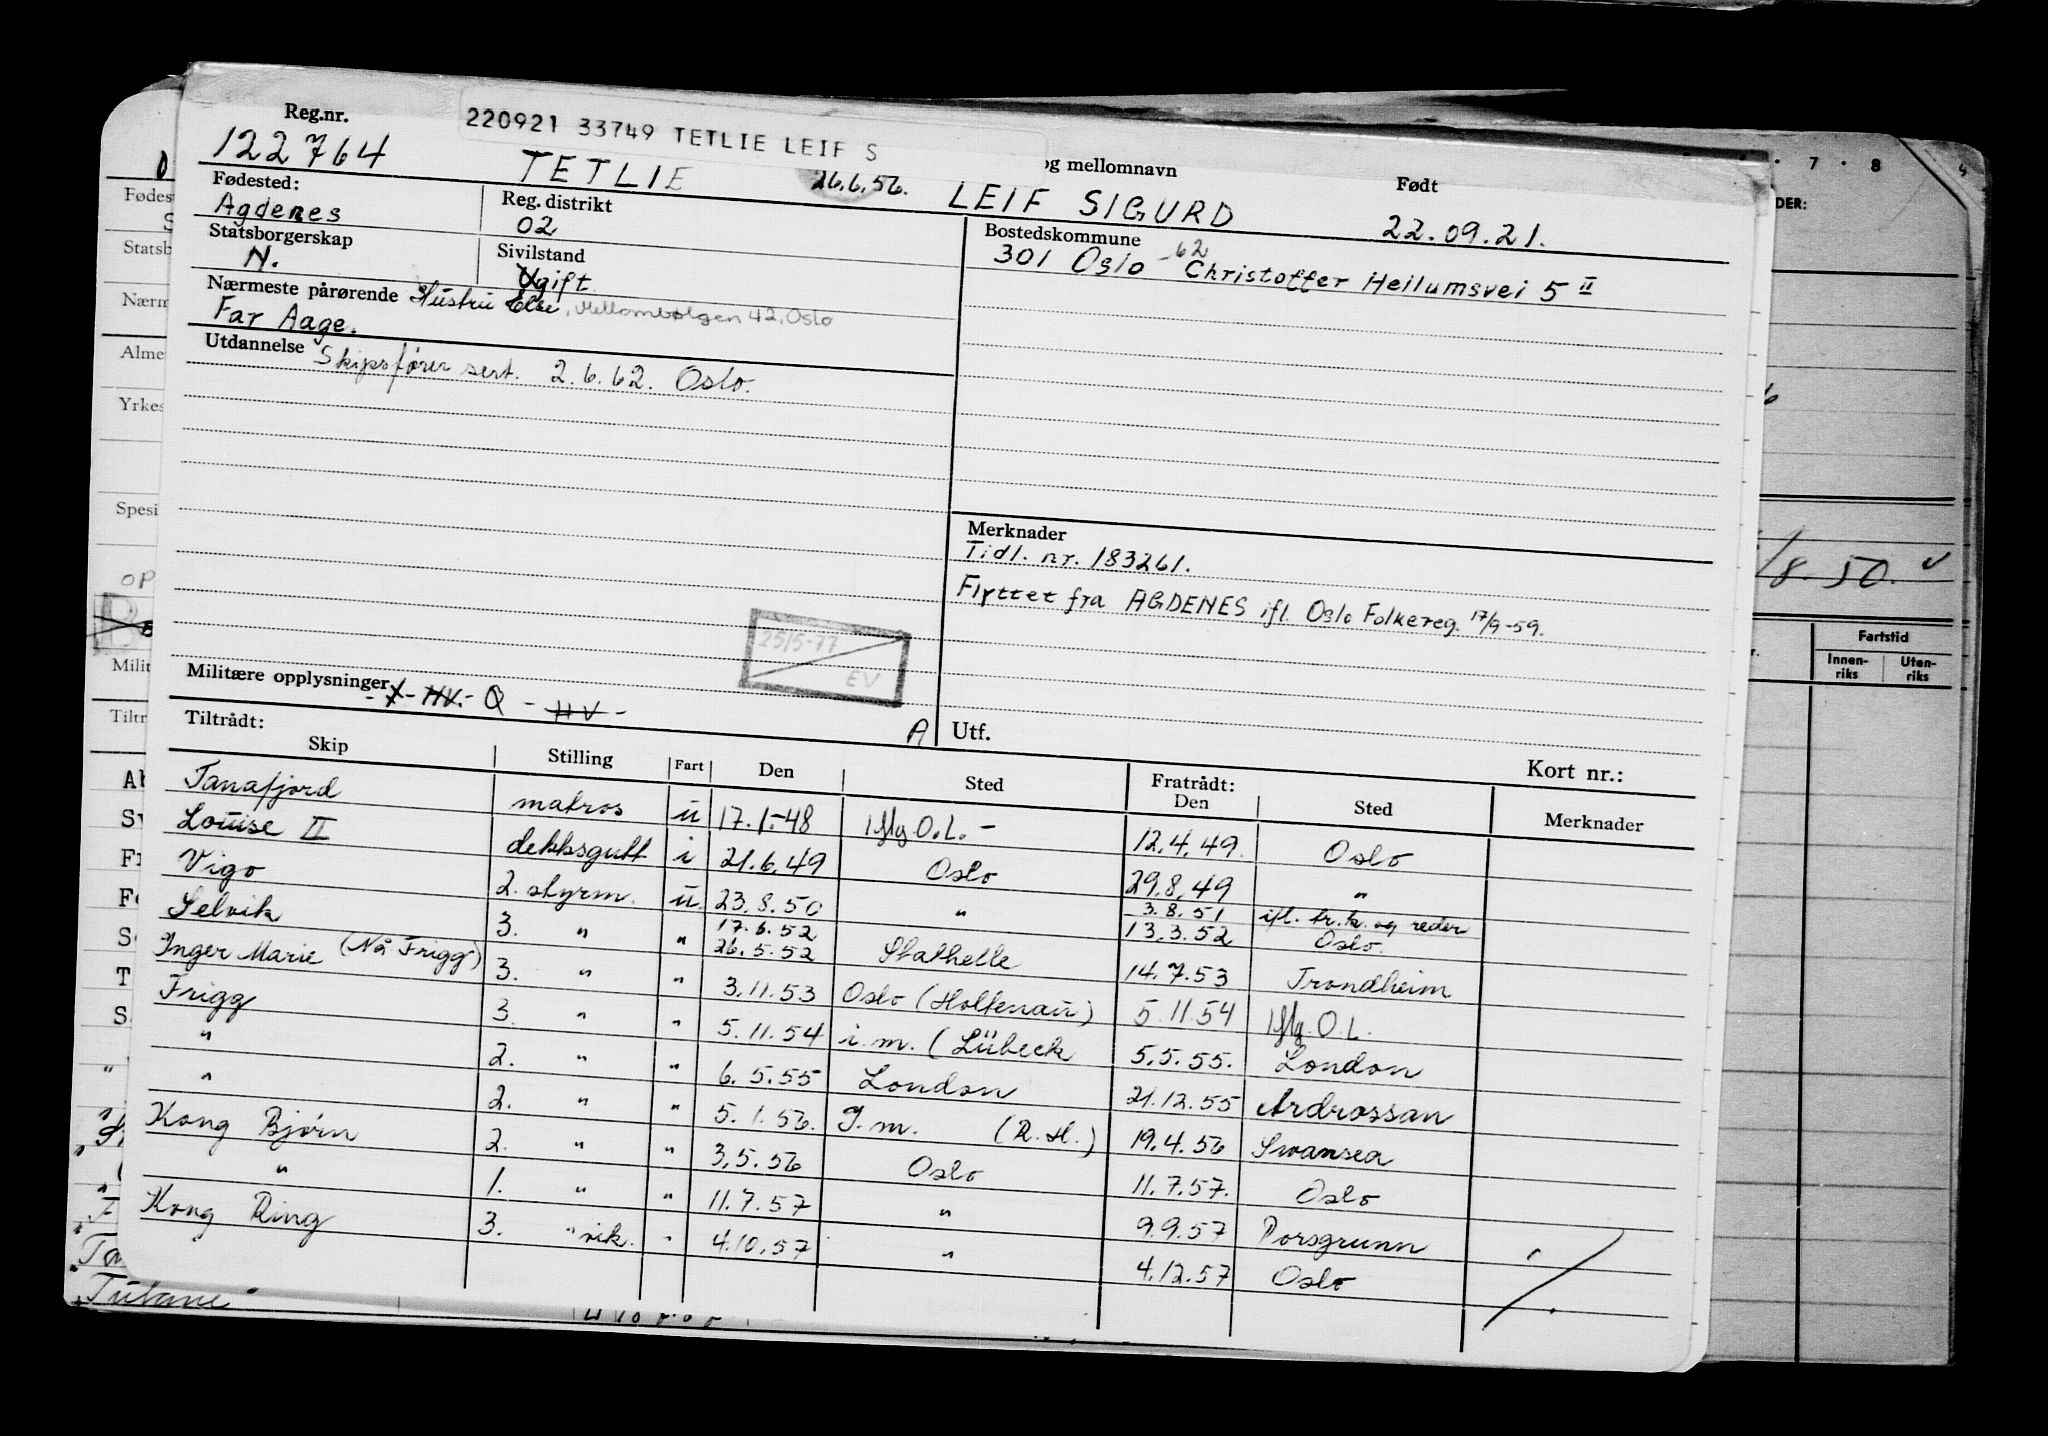 220921 33749 TETLIE LEIF S
Reg.nr. og mellomnavn Født
122764 TETLIE 26.6.56. LEIF SIGURD 22.09.21.
Fødested: Reg. distrikt Bostedskommune
Agdenes 02 301 Oslo - 62 Christoffer Hellumsvei 5 II
Statsborgerskap Sivilstand
N. Ugift
Nærmeste pårørende Hustru Else, Mellombølgen 42, Oslo
Far Aage.
Utdannelse Skipsfører sert. 2.6.62. Oslo.
Merknader
Tidl. nr. 183261.
Flyttet fra AGDENES ifl. Oslo Folkereg. 17/9-59.
25/5-77
EV
Militære opplysninger - X - HV. - Q - HV -
A Utf.
Tiltrådt: Fratrådt: Kort nr.:
Skip Stilling Fart Den Sted Den Sted Merknader
Tanafjord matros u 17.1.-48 iflg. O.L. - 12.4.49. Oslo
Louise II dekksgutt i 21.6.49 Oslo 29.8.49 "
Vigo 2. styrm. u. 23.8.50 " 3.8.51 ifl. br.k. og reder
Selvik 3. " " 17.6.52 26.5.52 Stathelle 13.3.52 Oslo.
Inger Marie (Nå Frigg) 3. " " 3.11.53 Oslo (Holtenau) 14.7.53 Trondheim
Frigg 3. " " 5.11.54 i.m. (Lübeck 5.11.54 iflg. O.L.
" 2. " " 6.5.55 London 5.5.55. London
" 2. " " 5.1.56. P.m. (R.H.) 21.12.55 Ardrossan
Kong Bjørn 2. " " 3.5.56 Oslo 19.4.56 Swansea
" 1. " " 11.7.57 " 11.7.57. Oslo
Kong Ring 3. " vik. " 4.10.57 " 9.9.57 Porsgrunn
4.12.57 Oslo
7 8
DER:
/8.50. v
Fartstid
Innen-riks Uten-riks
Fødest
Statsb
Nærm
Alme
Yrkes
Spesi
OP
Milit
Tiltr